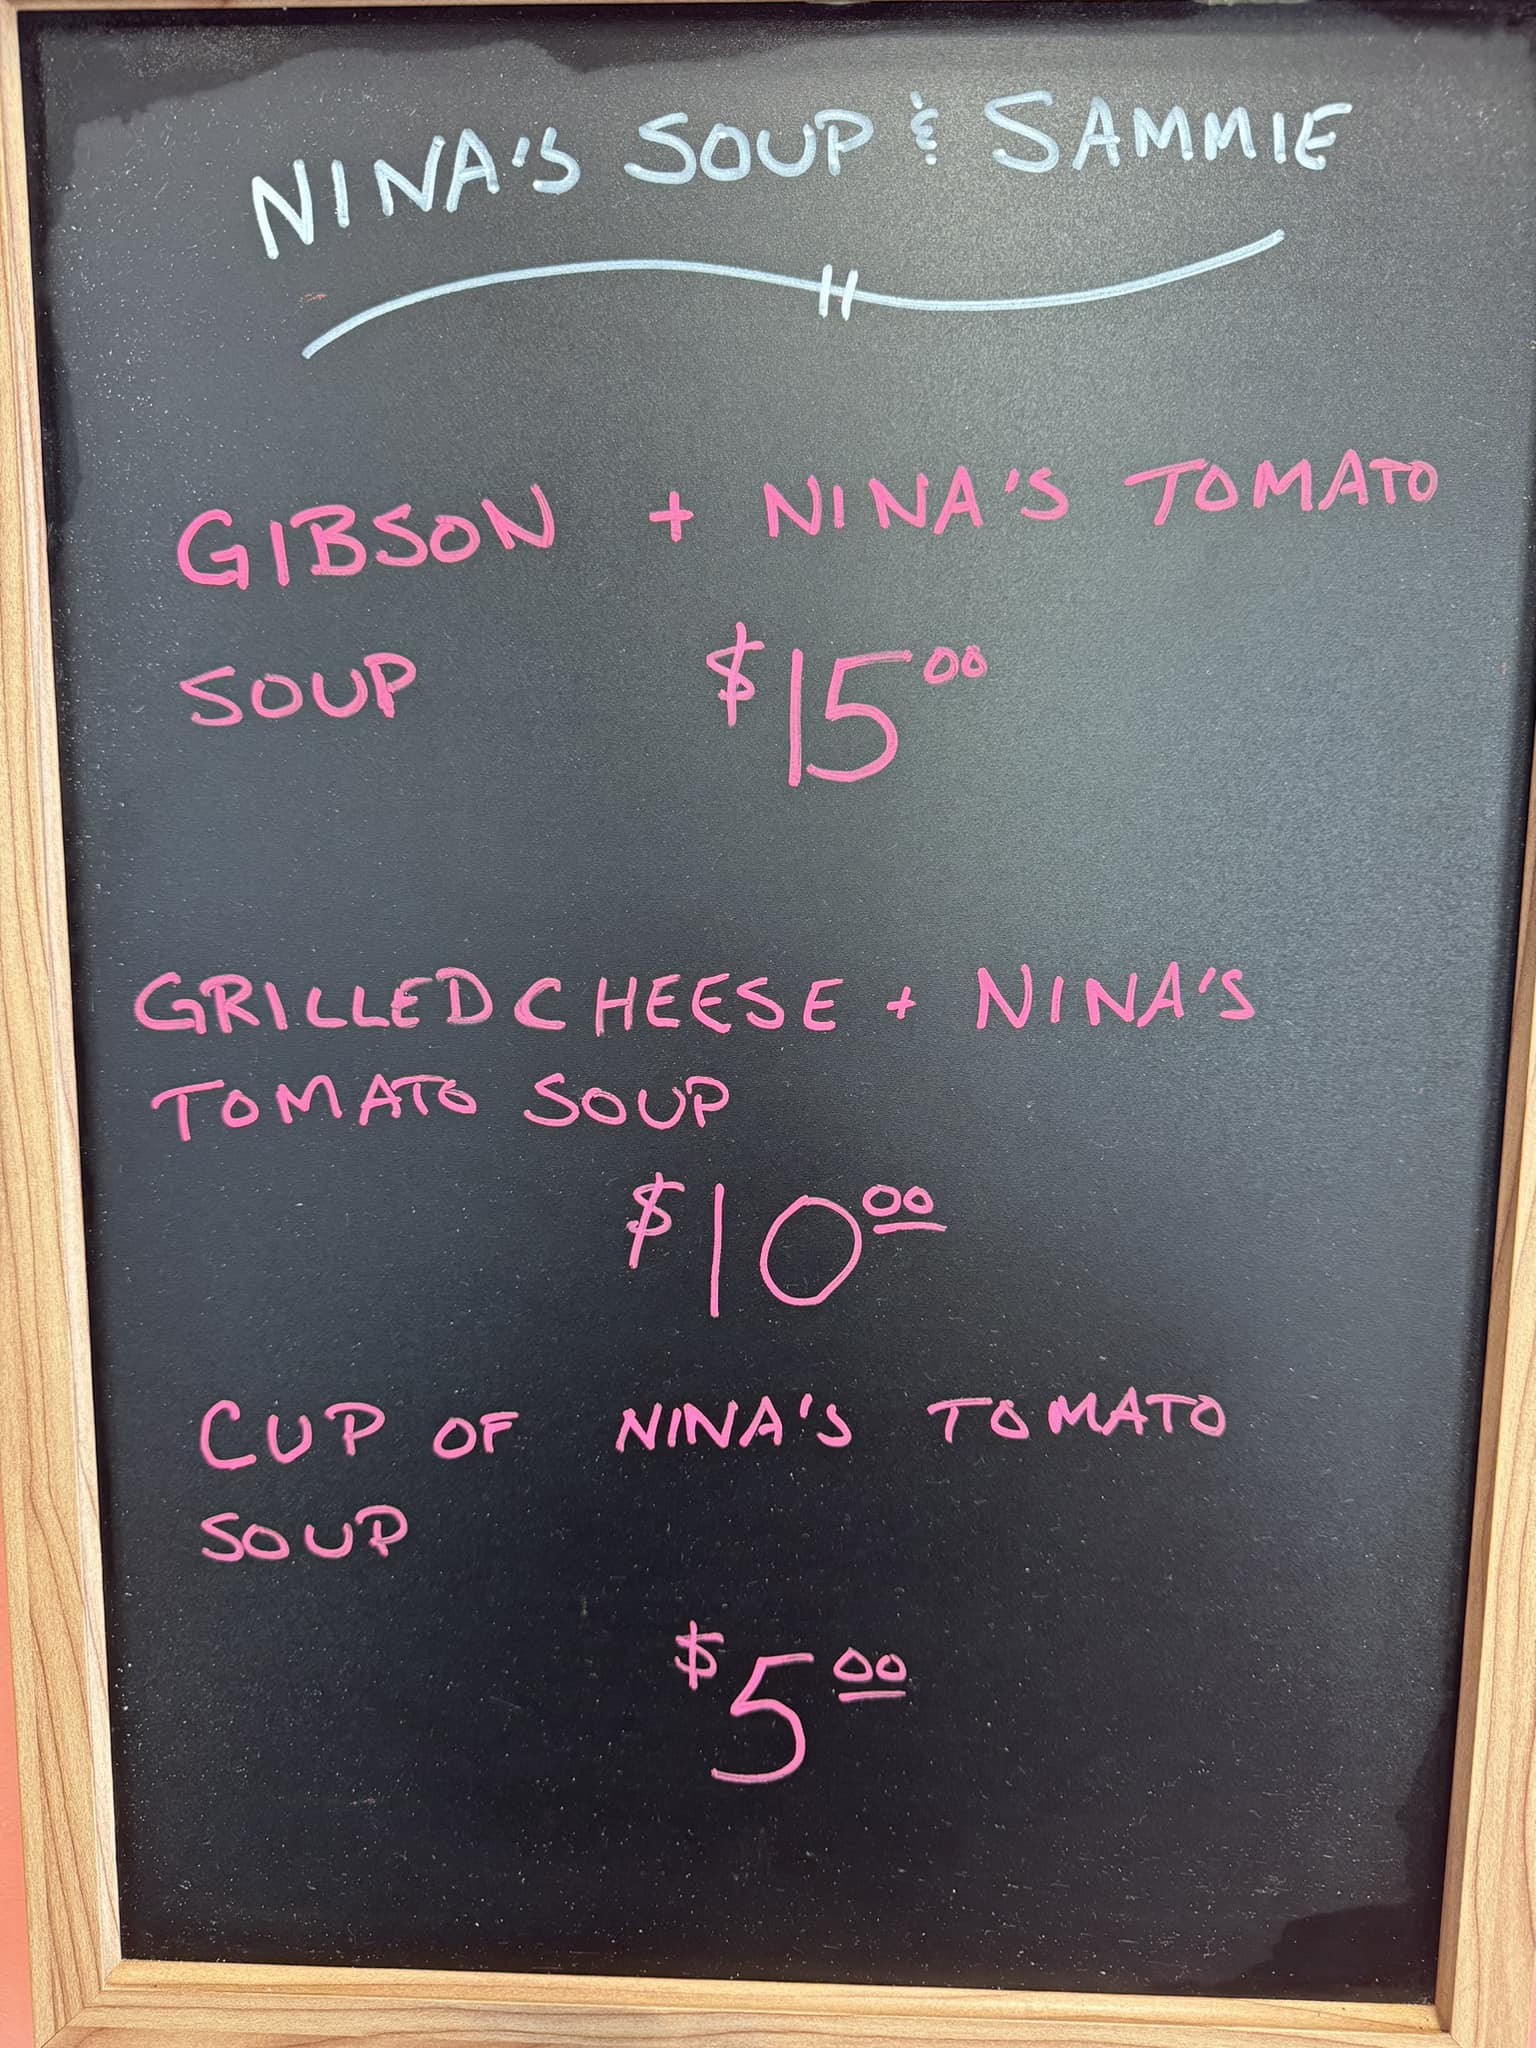 NINA'S SOUP & SAMMIE
GIBSON + NINA'S TOMATO
SOUP $15.00
GRILLED CHEESE + NINA'S
TOMATO SOUP
$10.00
CUP OF NINA'S TOMATO
SOUP
$5.00